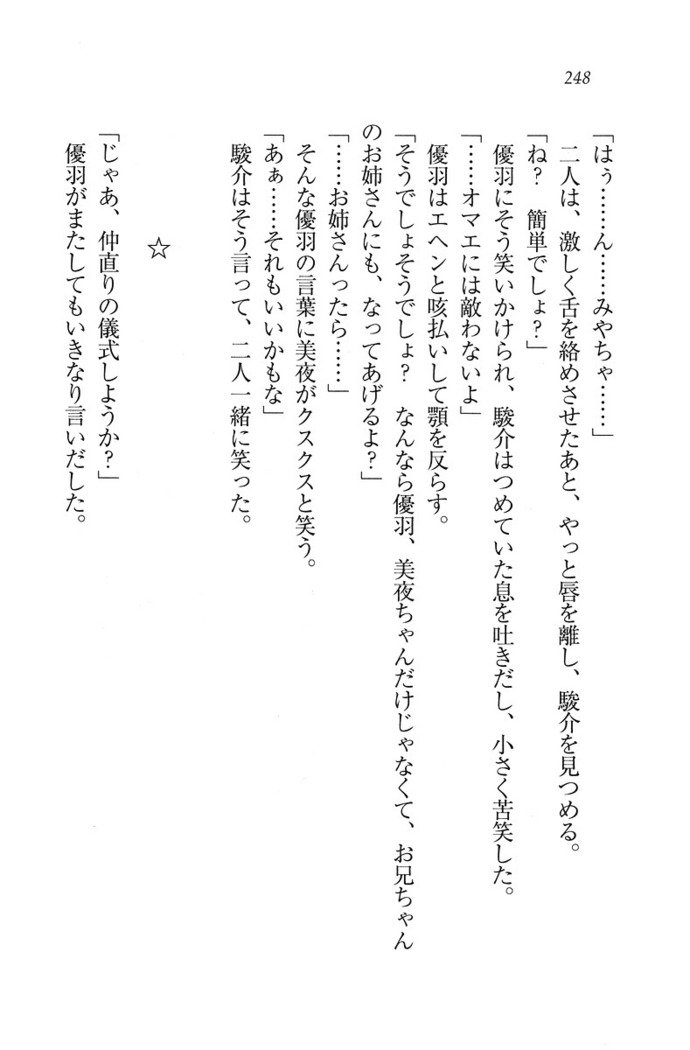 248
「はぅ……ん……みやちゃ……」
　二人は、激しく舌を絡めさせたあと、やっと唇を離し、駿介を見つめる。
「ね？　簡単でしょ？」
　優羽にそう笑いかけられ、駿介はつめていた息を吐きだし、小さく苦笑した。
「……オマエには敵わないよ」
　優羽はエヘンと咳払いして顎を反らす。
「そうでしょそうでしょ？　なんなら優羽、美夜ちゃんだけじゃなくて、お兄ちゃん
のお姉さんにも、なってあげるよ？」
「……お姉さんったら……」
　そんな優羽の言葉に美夜がクスクスと笑う。
「あぁ……それもいいかもな」
　駿介はそう言って、二人一緒に笑った。
☆
「じゃあ、仲直りの儀式しようか？」
　優羽がまたしてもいきなり言いだした。